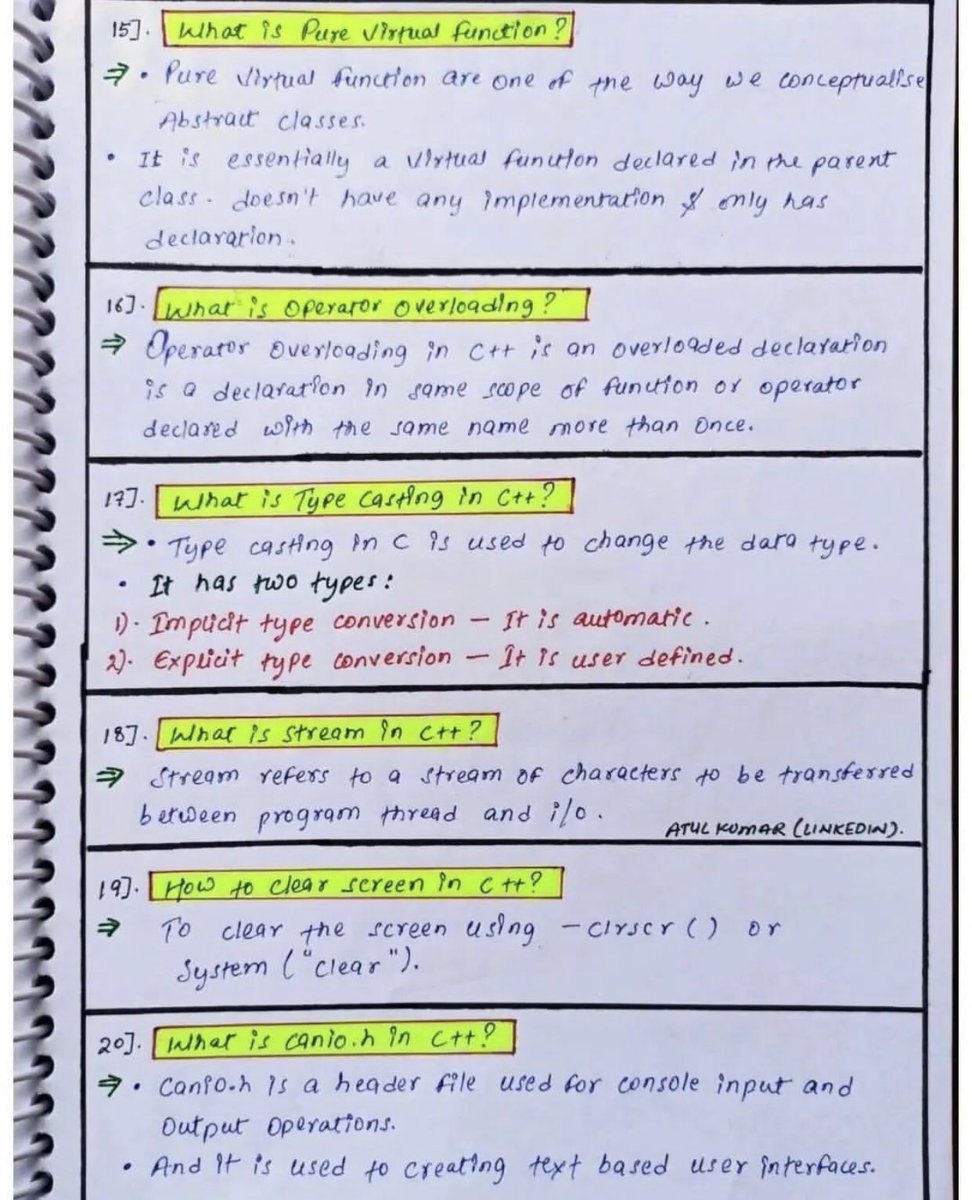 15]. What is Pure Virtual function?
⇒ • Pure Virtual function are one of the way we conceptualise
Abstract classes.
• It is essentially a virtual function declared in the parent
class. doesn't have any implementation & only has
declaration.
16]. What is Operator Overloading?
⇒ Operator Overloading in C++ is an overloaded declaration
is a declaration in same scope of function or operator
declared with the same name more than once.
17]. What is Type Casting in C++?
⇒ • Type casting in C is used to change the data type.
• It has two types:
1). Implicit type conversion – It is automatic.
2). Explicit type conversion – It is user defined.
18]. What is stream in C++?
⇒ Stream refers to a stream of characters to be transferred
between program thread and i/o.
ATUL KUMAR (LINKEDIN).
19]. How to clear screen in C++?
⇒ To clear the screen using – clrscr() or
System ("clear").
20]. What is canio.h in C++?
⇒ • Canio.h is a header file used for console input and
Output Operations.
• And it is used to creating text based user interfaces.